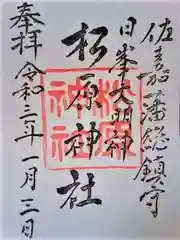 佐嘉藩総鎮守
日峯大明神
松原神社
奉拝
令和三年一月三日
松原
神社